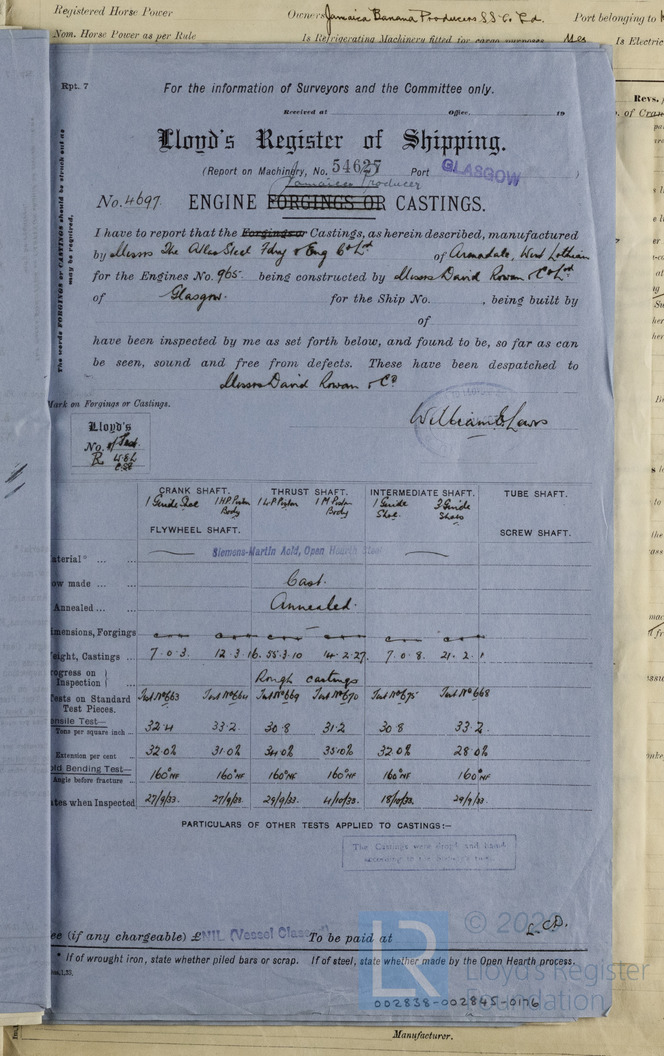 Registered Horse Power
Owners Jamaica Banana Producers S.S. Co. Ld.
Port belonging to
Nom. Horse Power as per Rule
Is Refrigerating Machinery fitted for cargo purposes Yes
Is Electric
Revs.
Rpt. 7
For the information of Surveyors and the Committee only.
Received at
Office,
19
Lloyd's Register of Shipping.
(Report on Machinery, No. 54627 Port GLASGOW )
Jamaica Producer
No. 4697. ENGINE FORGINGS OR CASTINGS.
The words FORGINGS or CASTINGS should be struck out as
may be required.
I have to report that the Forgings or Castings, as herein described, manufactured
by Messrs The Atlas Steel Fdry & Eng Co Ltd of Armadale, West Lothian
for the Engines No. 965 being constructed by Messrs David Rowan & Co Ld.
of Glasgow. for the Ship No. , being built by
of
have been inspected by me as set forth below, and found to be, so far as can
be seen, sound and free from defects. These have been despatched to
Messrs David Rowan & Co
Mark on Forgings or Castings.
Lloyd's
No. of Test
R
CRANK SHAFT.
THRUST SHAFT.
INTERMEDIATE SHAFT.
TUBE SHAFT.
1 Guide Shoe
1 H.P. Piston Body
1 L.P. Piston
1 M Piston Body
1 Guide Shoe.
3 Guide Shoes
FLYWHEEL SHAFT.
SCREW SHAFT.
Siemens-Martin Acid, Open Hearth Steel
aterial*
ow made Cast.
Annealed Annealed.
imensions, Forgings
eight, Castings 7.0.3. 12.3.16. 55.3.10 14.2.27. 7.0.8. 21.2.1
rogress on Inspection Rough castings
ests on Standard Test Pieces. Test No 663 Test No 669 Test No 670 Test No 675 Test No 668
ensile Test—
Tons per square inch 32.4 33.2. 30.8 31.2 30.8 33.2
Extension per cent 32.0% 31.0% 34.0% 35.0% 32.0% 28.0%
ld Bending Test—
Angle before fracture 160° NF 160° NF 160° NF 160° NF 160° NF 160° NF
tes when Inspected 27/9/33. 27/9/33. 29/9/33. 4/10/33. 18/10/33. 29/9/33.
PARTICULARS OF OTHER TESTS APPLIED TO CASTINGS:—
The Castings were dropd and hamd
ee (if any chargeable) £ NIL (Vessel Classed) To be paid at
* If of wrought iron, state whether piled bars or scrap. If of steel, state whether made by the Open Hearth process.
Lloyd's Register
Foundation
002838-002845-0176
Manufacturer.